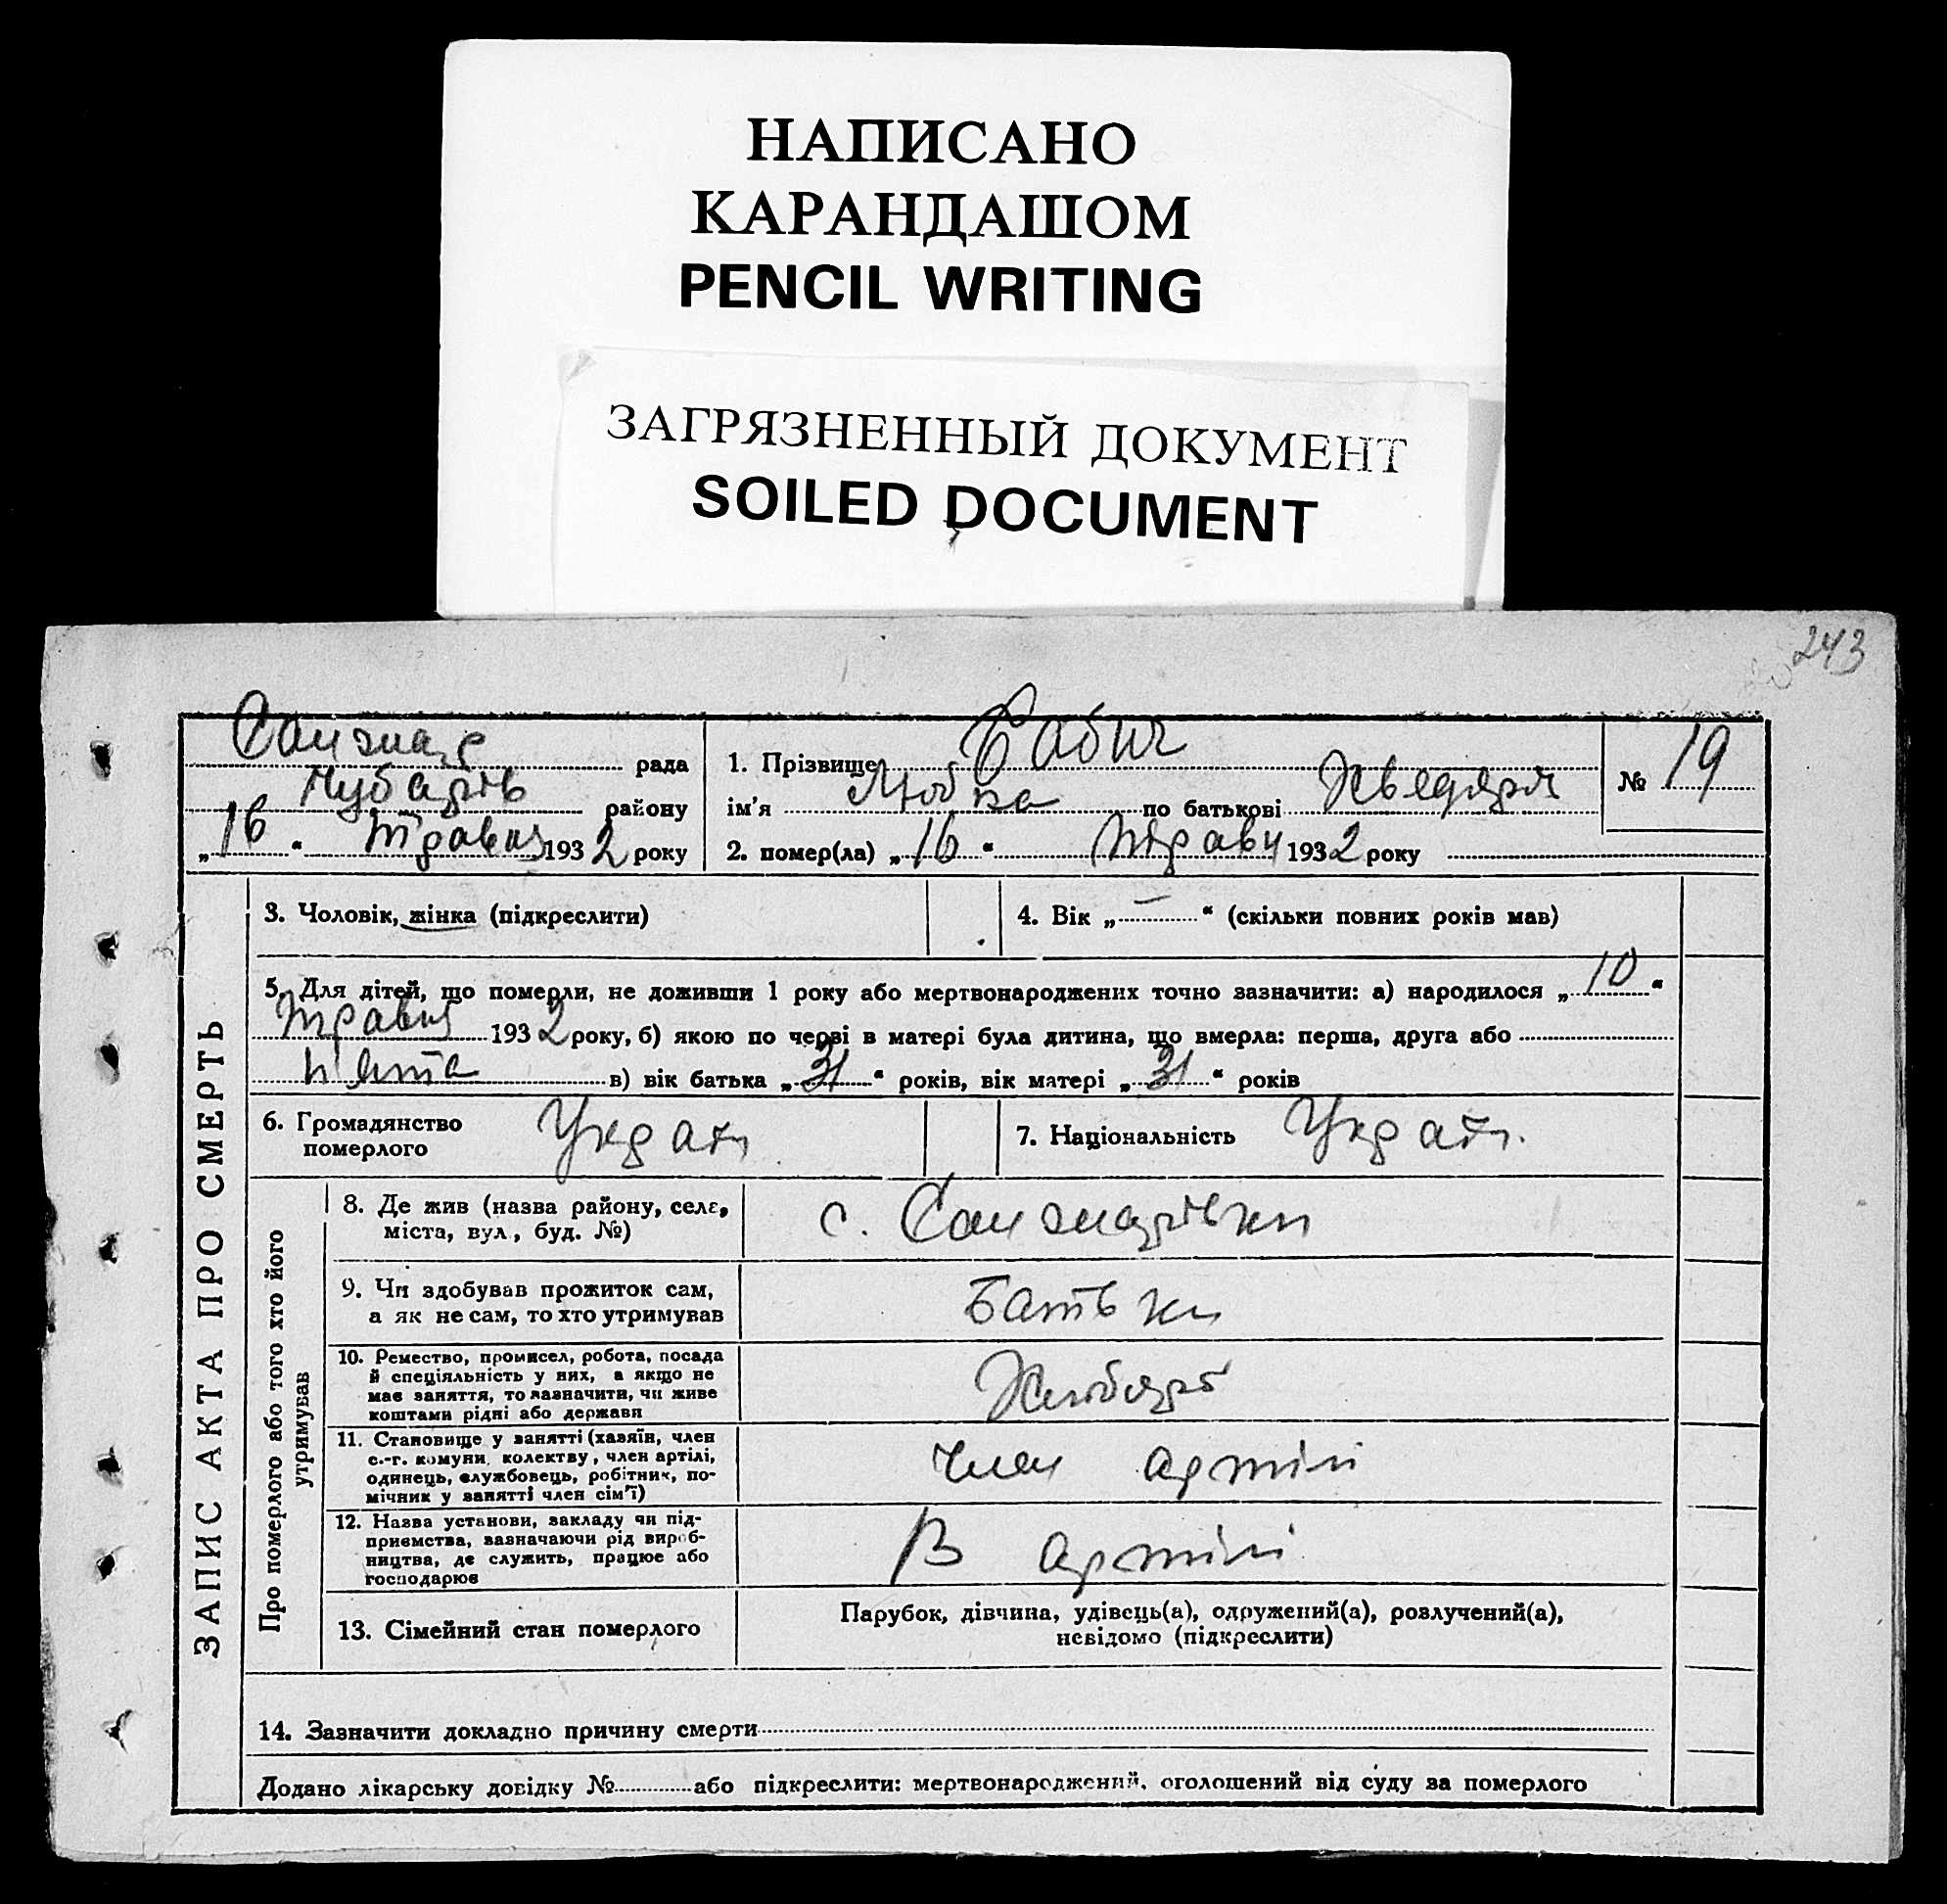 НАПИСАНО
КАРАНДАШОМ
PENCIL WRITING
ЗАГРЯЗНЕННЫЙ ДОКУМЕНТ
SOILED DOCUMENT
243
ЗАПИС АКТА ПРО СМЕРТЬ
рада
району
„16“ Травня 1932 року
1. Прізвище Бабич
ім'я Любка по батькові
№ 19
2. помер(ла) „16“ Травн 1932 року
3. Чоловік, жінка (підкреслити)
4. Вік „—“ (скільки повних років мав)
5. Для дітей, що померли, не доживши 1 року або мертвонароджених точно зазначити: а) народилося „10“
Травня 1932 року, б) якою по черві в матері була дитина, що вмерла: перша, друга або
пята в) вік батька „31“ років, вік матері „31“ років
6. Громадянство
померлого
Украін
7. Національність Украін.
Про померлого або того хто його
утримував
8. Де жив (назва району, селє,
міста, вул., буд. №)
с. Санжарівки
9. Чи здобував прожиток сам,
а як не сам, то хто утримував
Батьки
10. Ремество, промисел, робота, посада
й спеціяльність у них, а якщо не
має заняття, то зазначити, чи живе
коштами рідні або держави
Хлібороб
11. Становище у занятті (хазяїн, член
с.-г. комуни, колектву, член артілі,
одинець, службовець, робітник, по-
мічник у занятті член сім'ї)
член артілі
12. Назва установи, закладу чи під-
приємства, зазначаючи рід вироб-
ництва, де служить, працює або
господарює
В артілі
13. Сімейний стан померлого
Парубок, дівчина, удівець(а), одружений(а), розлучений(а),
невідомо (підкреслити)
14. Зазначити докладно причину смерти
Додано лікарську довідку № або підкреслити: мертвонароджений, оголошений від суду за померлого